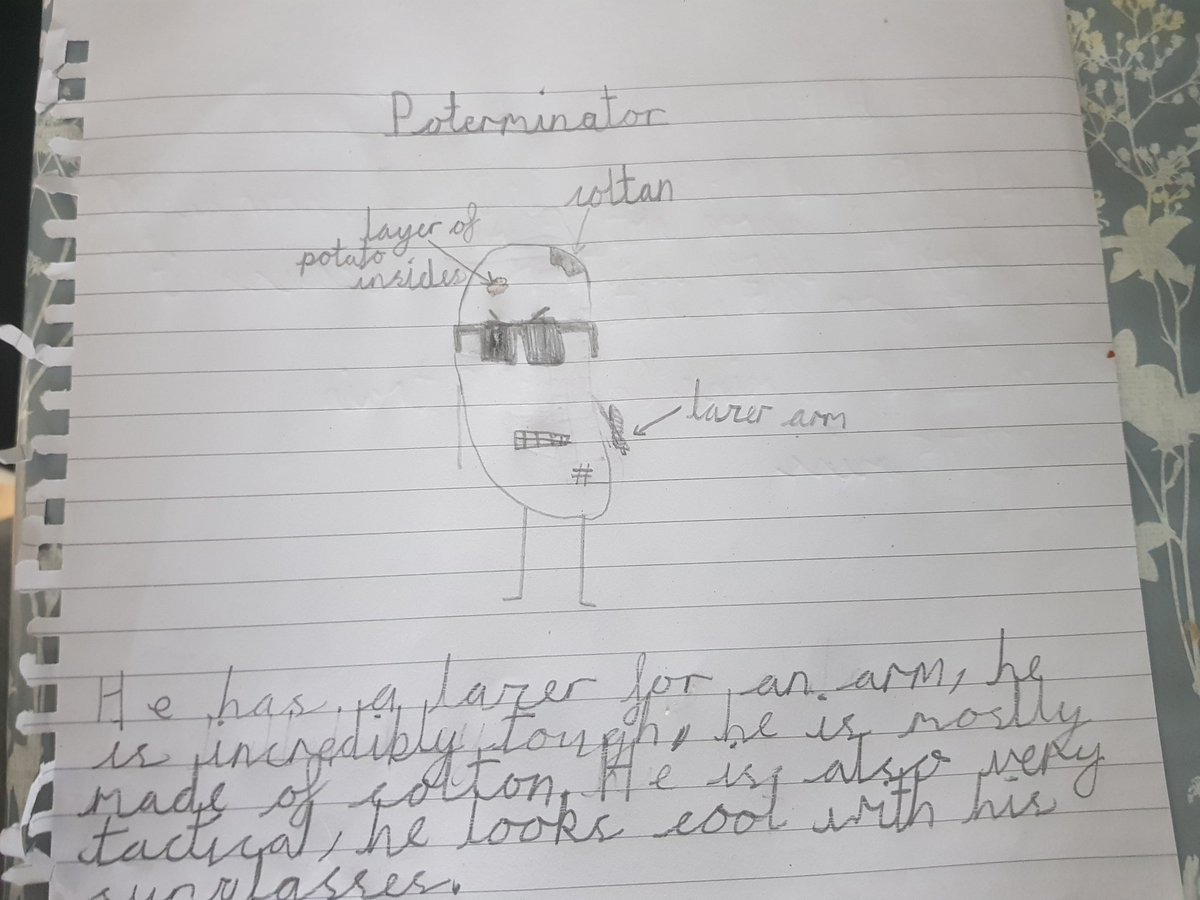 Poterminator
coltan
layer of
potato
insides
#
lazer arm
He has a lazer for an arm, he
is incredibly tough, he is mostly
made of colton. He is also very
tactical, he looks cool with his
sunglasses.